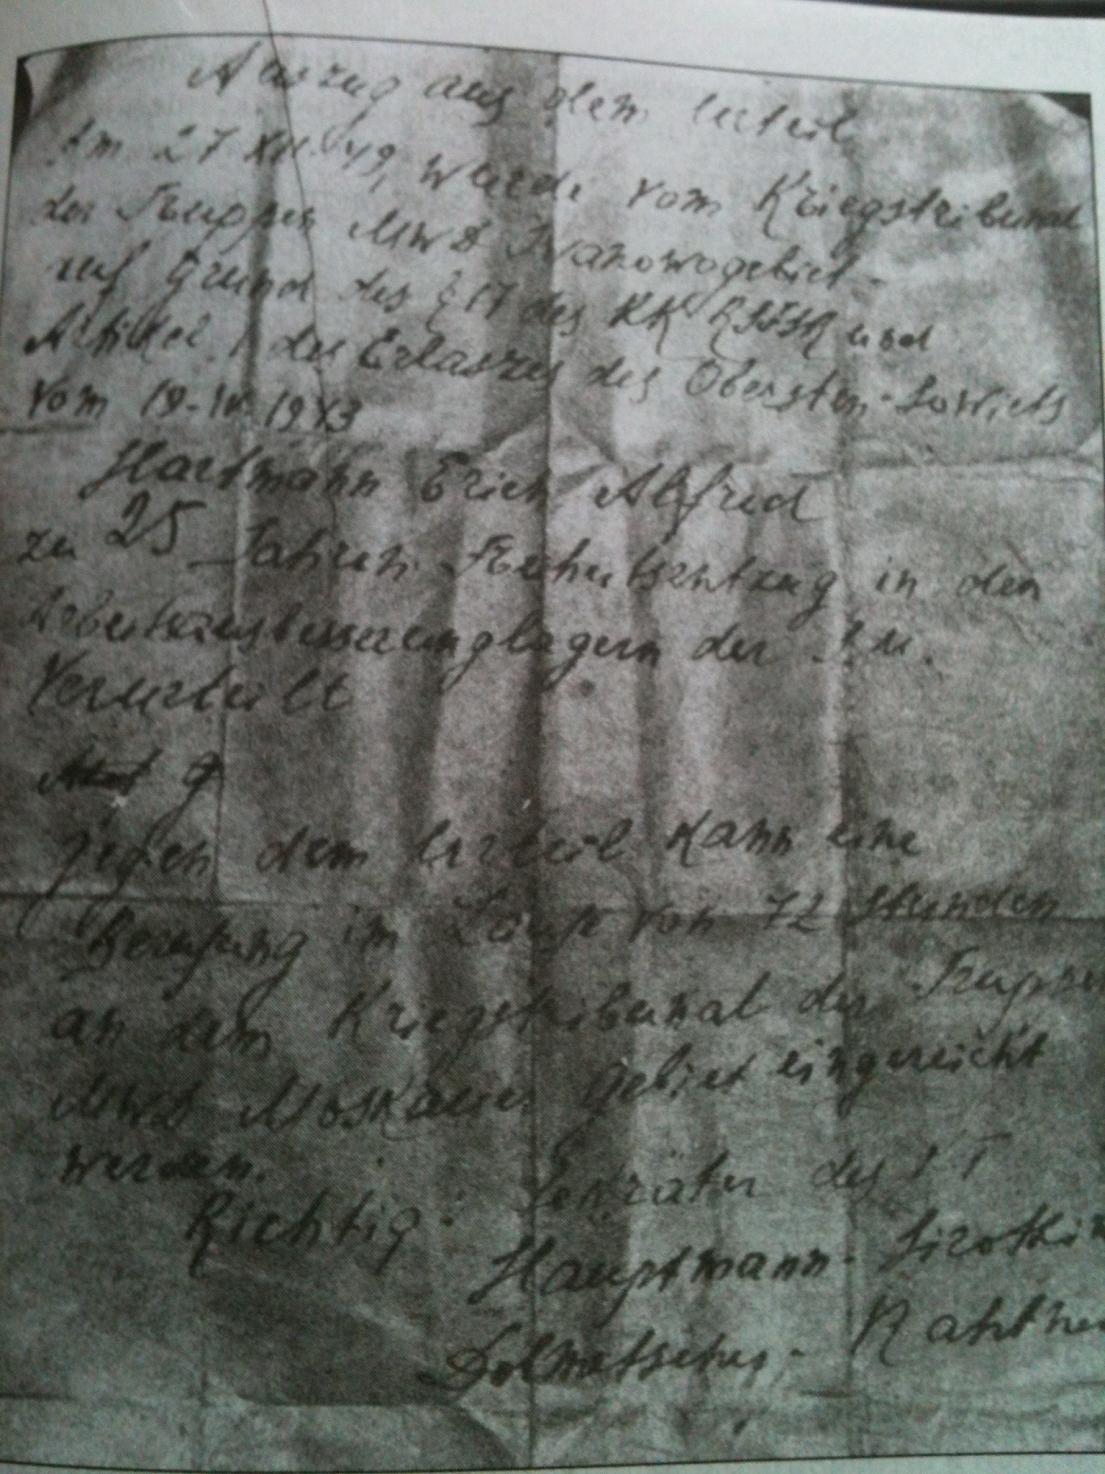 Auszug aus dem Urteil
Am 27 XII. 49, wurde vom Kriegstribunal
der Truppen MWD Iwanowogebiet -
auf Grund des § 17 des KK RSFSR und
Artikel 1 des Erlaszes des Obersten-Sowiets
vom 19-IV. 1943
Hartmann Erich Alfred
zu 25 Jahren Freiheitsentzug in den
Arbeitsausbesserunglagern der
Verurteilt
gegen dem Urteil kann eine
Berufung im Laufe von 72 Stunden
an dem Kriegstribunal der Truppen
MWD Moskauer Gebiet eingereicht
werden.
Richtig: Sekretäter des
Hauptmann - Sirotkin
Dolmatscher -